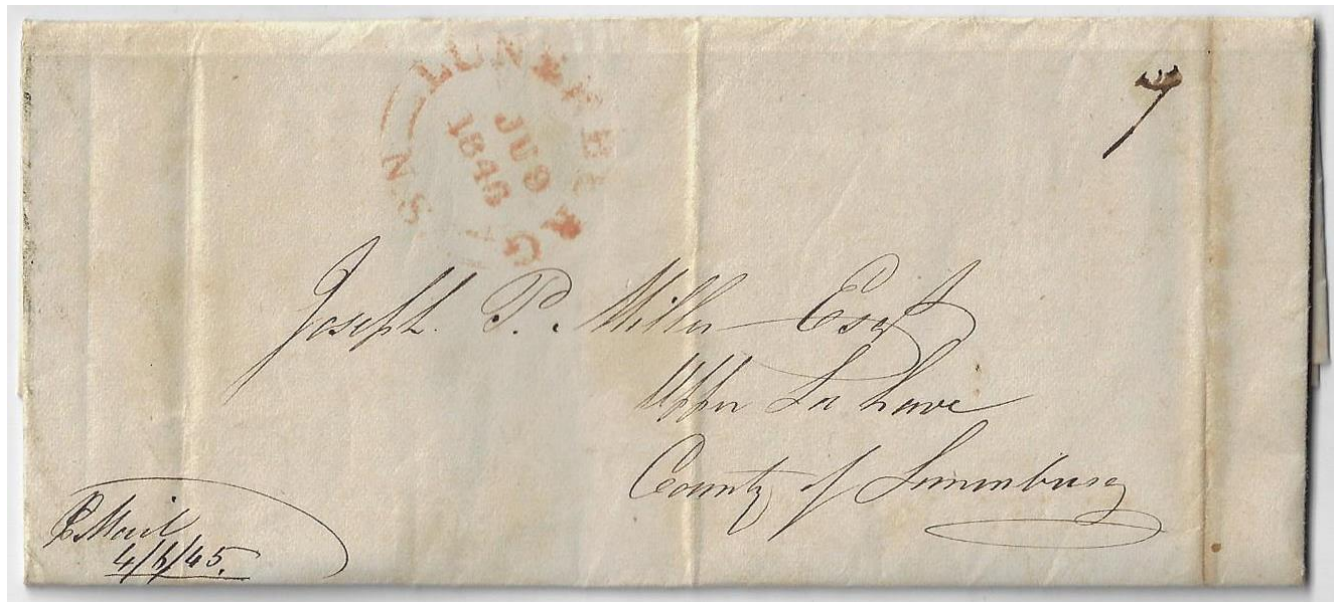 LUNENBURG
N.S
JU 9
1846
7
Joseph. P. Miller Esqr
Upper La have
County of Lunenburg
P Mail
4/6/45.